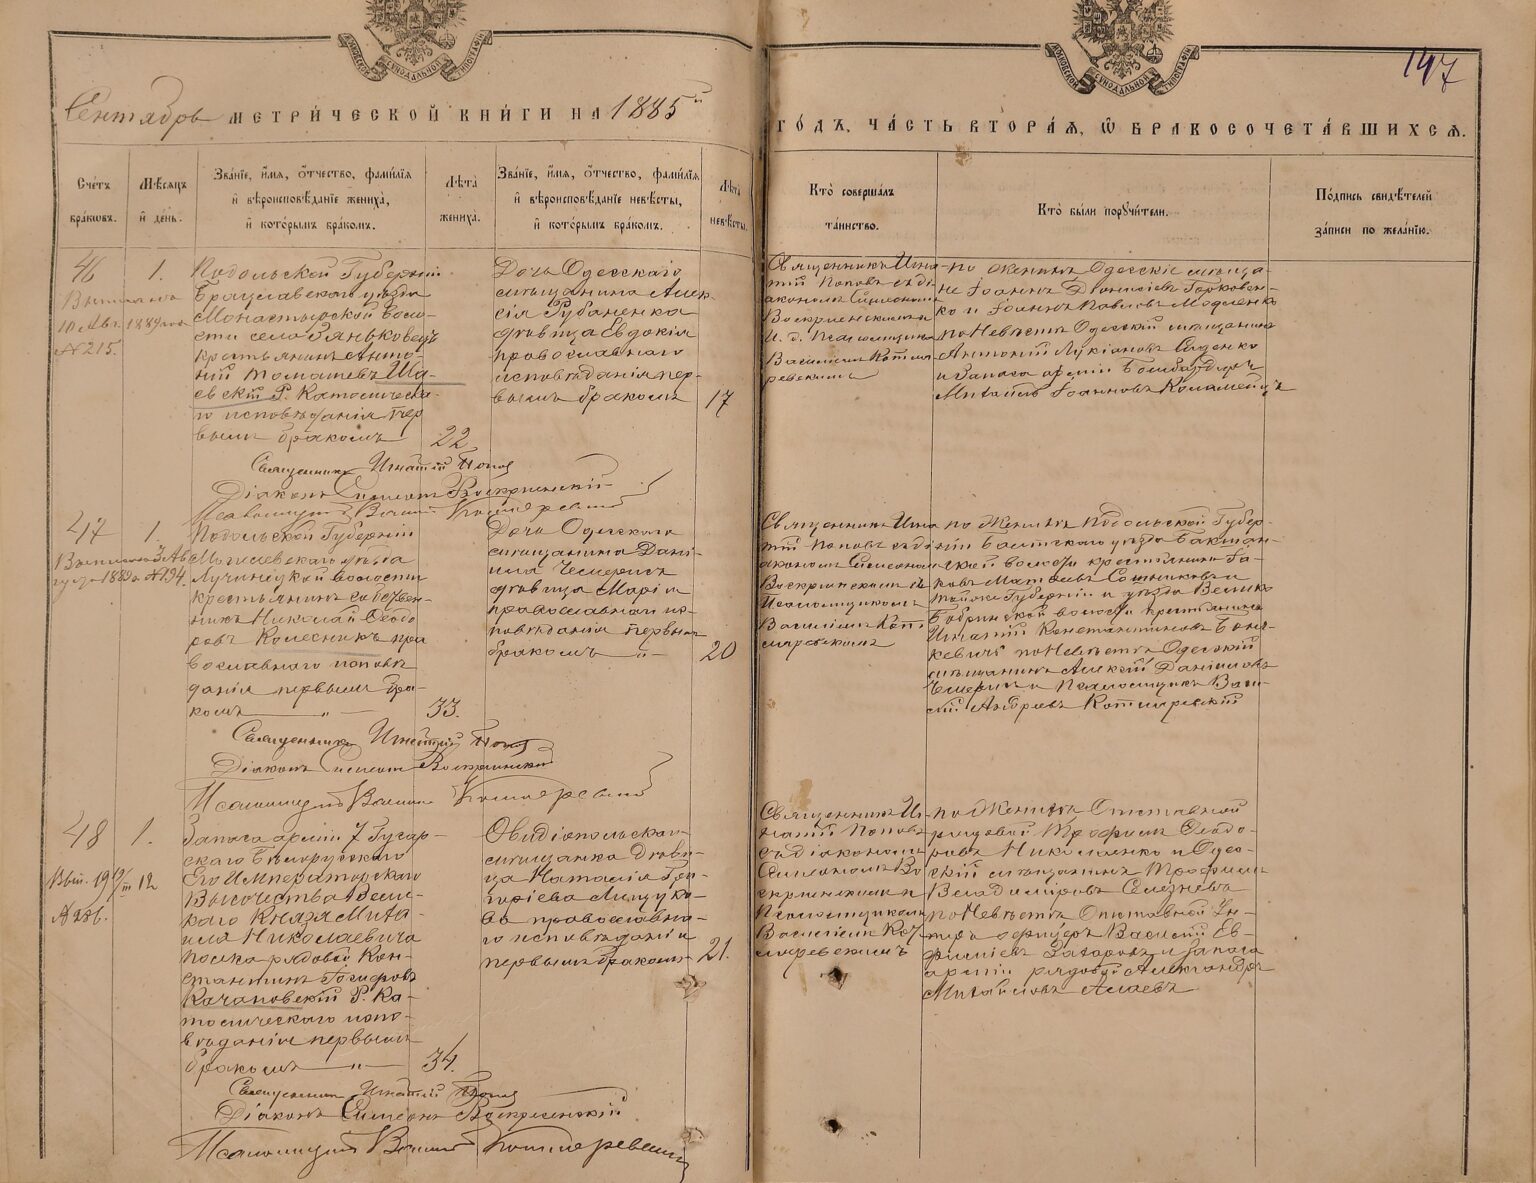 МОСКОВСКОЙ СѴНОДАЛЬНОЙ ТИПОГРАФІИ
МОСКОВСКОЙ СѴНОДАЛЬНОЙ ТИПОГРАФІИ
147
Сентябрь МЕТРИ́ЧЕСКОЙ КНИ́ГИ НА 1885й
ГО́ДЪ, ЧА́СТЬ ВТОРА́Ѧ, Ѽ БРАКОСОЧЕТА́ВШИХСѦ.
Счетъ
браковъ.
Мѣсѧцъ
и день.
Званіе, имѧ, отчество, фамилїѧ
и вѣроисповѣданіе жениха,
и которымъ бракомъ.
Лѣта
жениха.
Званіе, имѧ, отчество, фамилїѧ
и вѣроисповѣданіе невѣсты,
и которымъ бракомъ.
Лѣта
невѣсты.
Кто совершалъ
таинство.
Кто были поручители.
Подпись свидѣтелей
записи по желанію.
46
10 Авг. 1889 года
№ 215.
1.
Подольской Губерніи
Брацлавскаго уѣзда
Монастырской воло-
сти села Зяньковецъ
крестьянинъ Анто-
ній Томашевъ Ша-
евскій Р. Католическа-
го исповѣданія пер
вымъ бракомъ
22
Дочь Одесскаго
мѣщанина Алек-
сія Рубаненка
дѣвица Евдокія
православнаго
исповѣданія пер-
вымъ бракомъ
17
Священникъ Игна-
тій Поповъ съ ді-
акономъ Симеономъ
Воскресенскимъ и
И. д. Псаломщика
Василіемъ Котля
ревскимъ
по женихѣ Одесскіе мѣща-
не Іоаннъ Діонисіевъ Горковен-
ко и Іоаннъ Павловъ Модленко
по Невѣстѣ Одесскій мѣщанинъ
Антоній Лукіановъ Сиденко
и Запаса арміи Бомбардиръ
Михаилъ Іоанновъ Коломеецъ
Священникъ Игнатій Попов
Діаконъ Симеонъ Воскресенскій
Псаломщикъ Василій Котляревскій
47
1.
Подольской Губерніи
Могилевскаго уѣзда
Лучинецкой волости
крестьянинъ собствен-
никъ Николай Ѳеодо
ровъ Колесникъ пра
вославнаго исповѣ
данія первымъ бра-
комъ — „ —
33.
Дочь Одесскаго
мѣщанина Дані-
ила Чемерисъ
дѣвица Марія
православнаго ис-
повѣданія первымъ
бракомъ — „ —
20
Священникъ Игна
тій Поповъ съ ді
акономъ Симеономъ
Воскресенскимъ и
Псаломщикомъ
Василіемъ Кот
ляревскимъ
по Женихѣ Подольской Губер-
ніи Балтскаго уѣзда
ской волости крестьянинъ Іа-
ковъ Матѳеевъ Сотниковъ и
Губерніи и уѣзда Велико
Бобринской волости крестьянинъ
Игнатій Константиновъ
кевичъ по Невѣстѣ Одесскій
мѣщанинъ Алексій Даніиловъ
Чемерисъ и Псаломщикъ Васи-
лій Андреевъ Котляревскій
Священникъ Игнатій Попов
Діаконъ Симеонъ Воскресенскій
Псаломщикъ Василій Котляревскій
48
Выд. 19 19/III 12
1.
Запаса арміи 7 Гусар-
скаго Бѣлорусскаго
Его Императорскаго
Высочества Вели-
каго Князя Миха-
ила Николаевича
полка рядовой Кон-
стантинъ
Качановскій Р. Ка-
толическаго испо-
вѣданія первымъ
бракомъ — „ —
34.
Овидіопольская
мѣщанка дѣви-
ца Наталія Гри-
горіева
ва православна-
го исповѣданія
первымъ бракомъ
21.
Священникъ Иг-
натій Поповъ
съ діакономъ
Симеономъ Во
скресенскимъ и
Псаломщикомъ
Василіемъ Кот
ляревскимъ
по Женихѣ Отставной
рядовой Трофимъ Ѳеодо-
ровъ Николаенко и Одес-
скій мѣщанинъ Трофимъ
Владиміровъ Селезневъ
по Невѣстѣ Отставной Ун-
теръ офицеръ Василій Ев-
фиміевъ Захаровъ и Запаса
арміи рядовой Александръ
Михайловъ Алаевъ
Священникъ Игнатій Попов
Діаконъ Симеонъ Воскресенскій
Псаломщикъ Василій Котляревскій